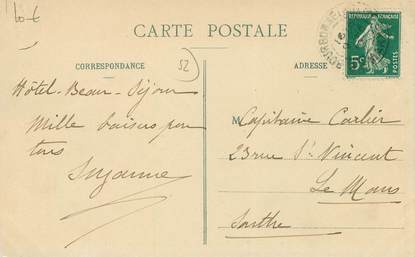 10 €
CARTE POSTALE
RÉPUBLIQUE FRANÇAISE
5c
POSTES
BOURBONNE
CORRESPONDANCE
52
ADRESSE
Hôtel-Beau-Séjour
Mille baisers pour
tous
Suzanne
M Capitaine Carlier
23 rue St Vincent
Le Mans
Sarthe